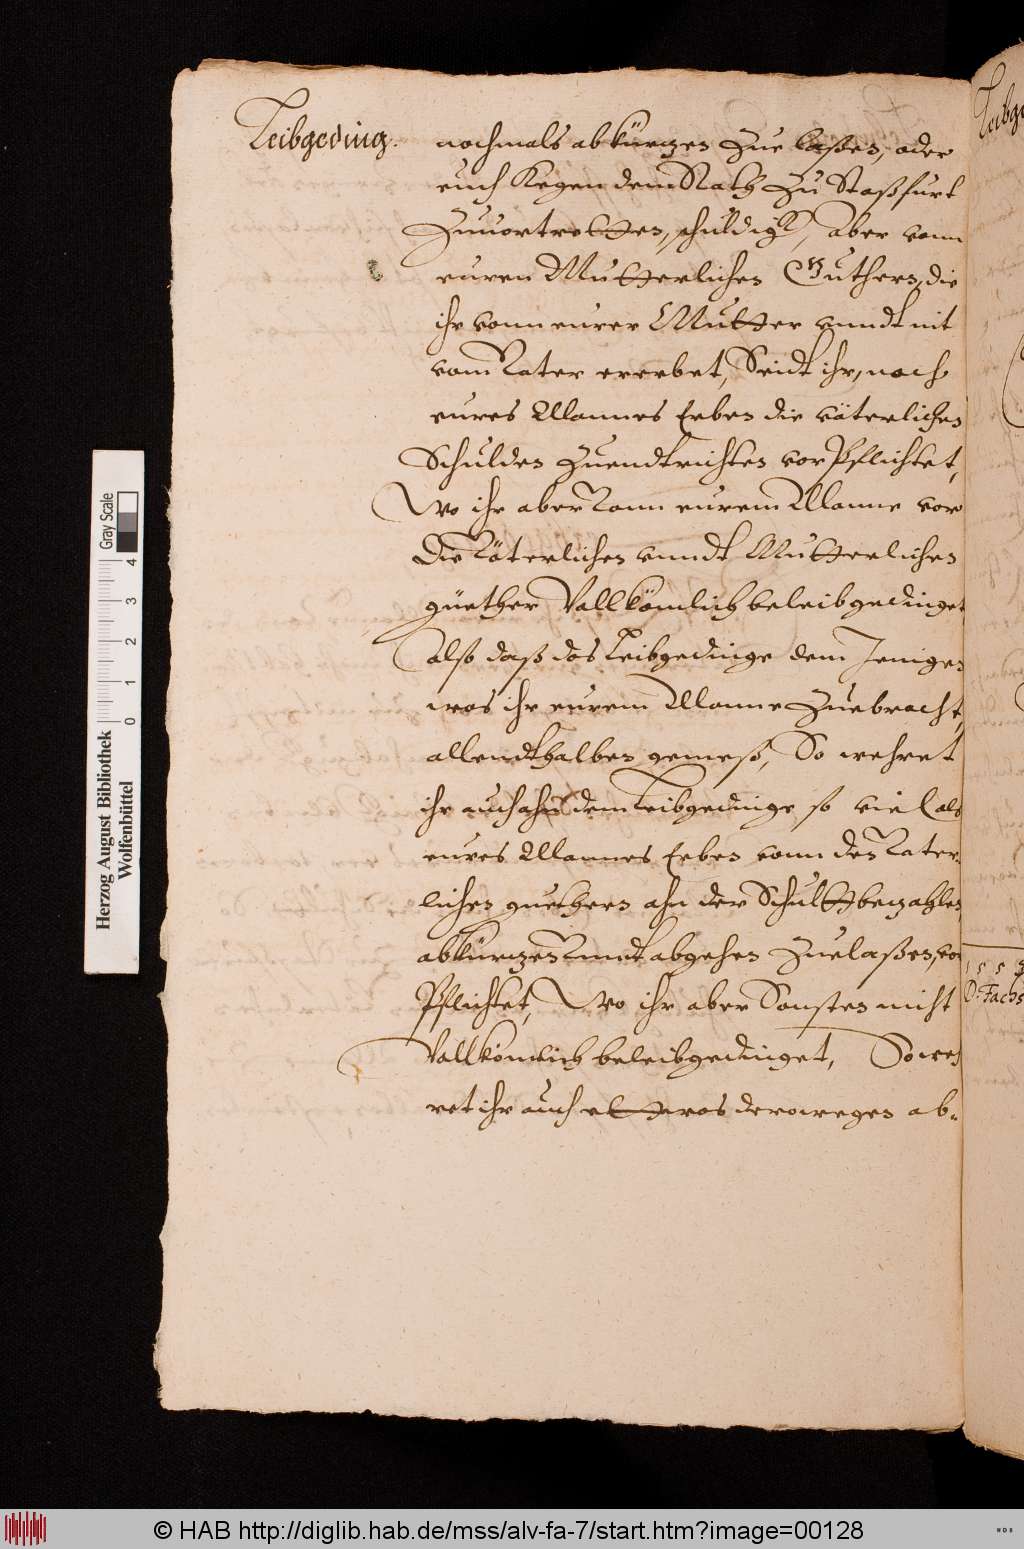 Leibgeding.
nochmals abkürtzen zue laßen, oder
euch kegen dem Rath zu Staßfurt
zuuortretten, schuldig, Aber vonn
euren Mutterlichen Guthern, die
ihr vonn eurer Mutter vnndt nit
vom Vater ererbet, Seidt ihr, noch
eures Mannes Erben die väterlichen
Schulden zuendtrichten vorpflichtet,
Wo ihr aber Vonn eurem Manne vor
Die Väterlichen vnndt Mutterlichen
güether Vollkömlich beleibgedinget
also daß das Leibgedinge dem Jenigen
was ihr eurem Manne zuebracht,
allendthalben gemeß, So wehret
ihr auch ahn dem Leibgedinge so viel als
eures Mannes Erben vonn den Väter-
lichen guethern ahn der Schultt bezahlen
abkürtzen Vnndt abgehen zuelaßen, vor
Pflichtet, Wo ihr aber Sonsten nicht
Vollkömlich beleibgedinget, So weh
ret ihr auch ettwas derowegen ab-
Leibge
1553
D. Fachs
Herzog August Bibliothek
Wolfenbüttel
0 1 2 3 4
Gray Scale
© HAB http://diglib.hab.de/mss/alv-fa-7/start.htm?image=00128